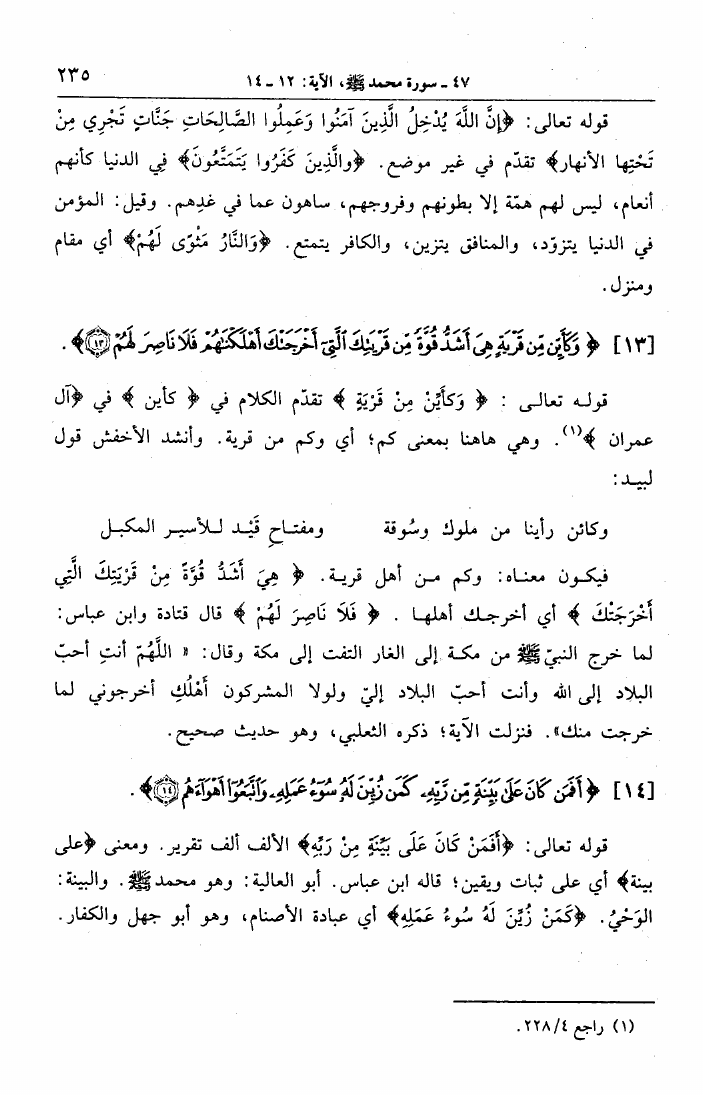 ٤٧ ـ سورة محمد ﷺ، الآية: ١٢ ـ ١٤ ٢٣٥
قوله تعالى: ﴿إِنَّ اللَّهَ يُدْخِلُ الَّذِينَ آمَنُوا وَعَمِلُوا الصَّالِحَاتِ جَنَّاتٍ تَجْرِي مِنْ
تَحْتِهَا الأنهار﴾ تقدّم في غير موضع. ﴿والَّذِينَ كَفَرُوا يَتَمَتَّعُونَ﴾ فِي الدنيا كأنهم
أنعام، ليس لهم همّة إلا بطونهم وفروجهم، ساهون عما في غدِهم. وقيل: المؤمن
في الدنيا يتزوّد، والمنافق يتزين، والكافر يتمتع. ﴿وَالنَّارُ مَثْوًى لَهُمْ﴾ أي مقام
ومنزل.
[١٣] ﴿ وَكَأَيِّن مِّن قَرْيَةٍ هِيَ أَشَدُّ قُوَّةً مِّن قَرْيَتِكَ ٱلَّتِيٓ أَخْرَجَتْكَ أَهْلَكْنَٰهُمْ فَلَا نَاصِرَ لَهُمْ ۝١٣﴾.
قولـه تعالـى : ﴿ وَكأَيِّنْ مِنْ قَرْيَةٍ ﴾ تقدّم الكلام في ﴿ كأين ﴾ في ﴿آل
عمران ﴾(١). وهي هاهنا بمعنى كم؛ أي وكم من قرية. وأنشد الأخفش قول
لبيـد:
وكائن رأينا من ملوك وسُوقة ومفتـاحِ قَيْـد لـلأسيـر المكبـل
فيكـون معنـاه: وكم مـن أهل قريـة. ﴿ هِيَ أَشَدُّ قُوَّةً مِنْ قَرْيَتِكَ الَّتِي
أَخْرَجَتْكَ ﴾ أي أخرجـك أهلهـا . ﴿ فَلَا نَاصِرَ لَهُمْ ﴾ قال قتادة وابن عباس:
لما خرج النبيّ ﷺ من مكـة إلى الغار التفت إلى مكة وقال: « اللَّهُمّ أنتِ أحبّ
البلاد إلى الله وأنت أحبّ البلاد إليّ ولولا المشركون أَهْلُكِ أخرجوني لما
خرجت منك». فنزلت الآية؛ ذكره الثعلبي، وهو حديث صحيح.
[١٤] ﴿ أَفَمَن كَانَ عَلَىٰ بَيِّنَةٍ مِّن رَّبِّهِۦ كَمَن زُيِّنَ لَهُۥ سُوٓءُ عَمَلِهِۦ وَٱتَّبَعُوٓا۟ أَهْوَآءَهُم ۝١٤﴾.
قوله تعالى: ﴿أَفَمَنْ كَانَ عَلَى بَيِّنَةٍ مِنْ رَبِّهِ﴾ الألف ألف تقرير. ومعنى ﴿على
بينة﴾ أي على ثبات ويقين؛ قاله ابن عباس. أبو العالية: وهو محمد ﷺ. والبينة:
الوَحْيُ. ﴿كَمَنْ زُيِّنَ لَهُ سُوءُ عَمَلِهِ﴾ أي عبادة الأصنام، وهو أبو جهل والكفار.
(١) راجع ٢٢٨/٤.